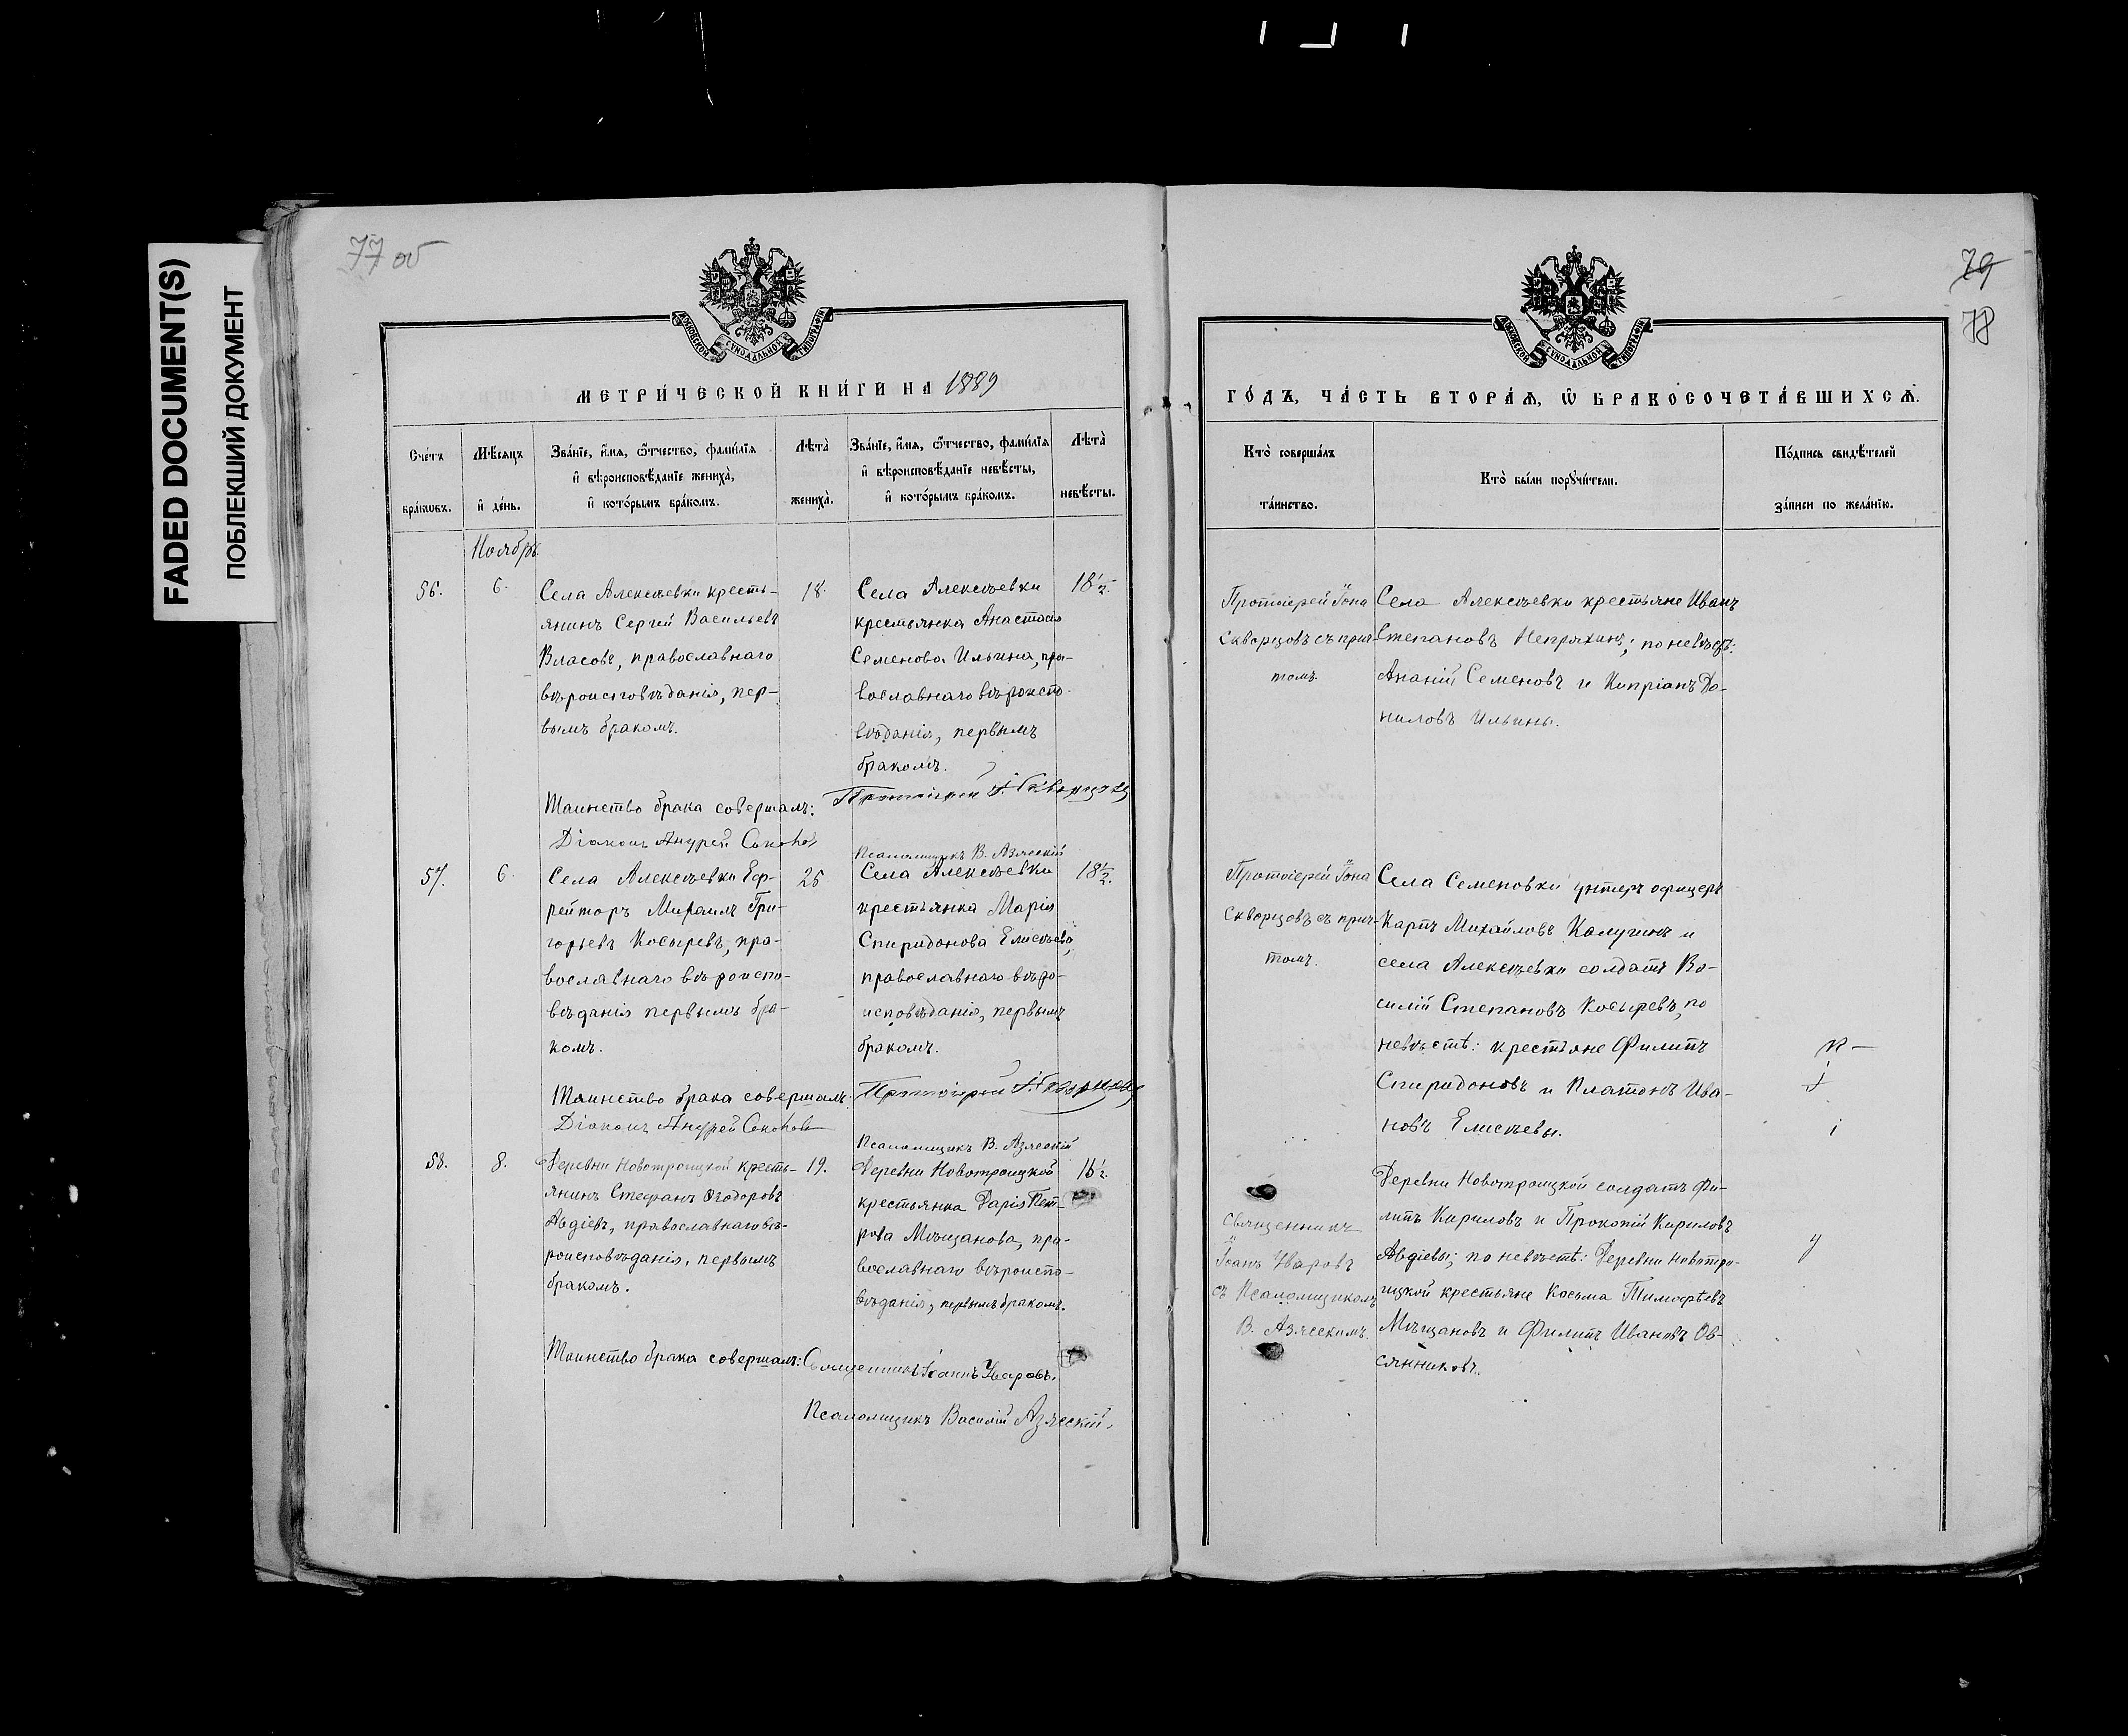 FADED DOCUMENT(S)
ПОБЛЕКШИЙ ДОКУМЕНТ
77 об
МОСКОВСКОЙ СѴНОДАЛЬНОЙ ТИПОГРАФІИ
МЕТРИ́ЧЕСКОЙ КНИ́ГИ НА 1889
Сче́тъ бра́кѡвъ.
Мѣ́сяцъ и҆ де́нь.
Зва́нїе, и҆́мѧ, ѻ҆́тчество, фами́лїѧ
и҆ вѣроисповѣ́данїе жениха̀,
и҆ кото́рымъ бра́комъ.
Лѣта̀ жениха̀.
Зва́нїе, и҆́мѧ, ѻ҆́тчество, фами́лїѧ
и҆ вѣроисповѣ́данїе невѣ́сты,
и҆ кото́рымъ бра́комъ.
Лѣта̀ невѣ́сты.
Ноябрь
56.
6.
Села Алексѣевки кресть-
янинъ Сергій Васильевъ
Власовъ, православнаго
вѣроисповѣданія, пер-
вымъ бракомъ.
18.
Села Алексѣевки
крестьянка Анастасія
Семенова Ильина, пра-
вославнаго вѣроиспо-
вѣданія, первымъ
бракомъ.
18½.
Таинство брака совершалъ:
Протоіерей І. Скворцовъ
Діаконъ Андрей
Псаломщикъ В. Азясскій
57.
6.
Села Алексѣевки Еф-
рейторъ Михаилъ Гри-
горьевъ Косыревъ, пра-
вославнаго вѣроиспо-
вѣданія первымъ бра-
комъ.
25
Села Алексѣевки
крестьянка Марія
Спиридонова Елисѣева,
православнаго вѣро-
исповѣданія, первымъ
бракомъ.
18½.
Таинство брака совершалъ:
Протоіерей І. Скворцовъ
Діаконъ Андрей
Псаломщикъ В. Азясскій
58.
8.
Деревни Новотроицкой кресть-
янинъ Стефанъ Ѳеодоровъ
Авдіевъ, православнаго вѣ-
роисповѣданія, первымъ
бракомъ.
19.
Деревни Новотроицкой
крестьянка Дарія Пет-
рова Мѣщанова, пра-
вославнаго вѣроиспо-
вѣданія, первымъ бракомъ.
16½.
Таинство брака совершалъ: Священникъ Іоаннъ Уваровъ.
Псаломщикъ Василій Азясскій.
79
78
МОСКОВСКОЙ СѴНОДАЛЬНОЙ ТИПОГРАФІИ
ГО́ДЪ, ЧА́СТЬ ВТОРА́Ѧ, Ѡ҆ БРАКОСОЧЕТА́ВШИХСѦ.
Кто̀ соверша́лъ
та́инство.
Кто̀ бы́ли порꙋчи́тели.
По́дпись свидѣ́телей
за́писи по жела́нїю.
Протоіерей Іона
Скворцовъ съ прич-
томъ.
Села Алексѣевки крестьяне Иванъ
Степановъ Непряхинъ; по невѣстѣ:
Ананій Семеновъ и Кипріанъ Да-
ниловъ Ильины.
Протоіерей Іона
Скворцовъ съ прич-
томъ.
Села Семеновки унтеръ офицеръ
Карпъ Михайловъ Калугинъ и
села Алексѣевки солдатъ Ва-
силій Степановъ Косыревъ, по
невѣстѣ: крестьяне Филипъ
Спиридоновъ и Платонъ Ива-
новъ Елисѣевы.
Священникъ
Іоанъ Уваровъ
съ Псаломщикомъ
В. Азясскимъ.
Деревни Новотроицкой солдатъ Фи-
липъ Кириловъ и Прокопій Кириловъ
Авдіевы; по невѣстѣ: Деревни Новотро-
ицкой крестьяне Косьма Тимофѣевъ
Мѣщановъ и Филипъ Ивановъ Ов-
сянниковъ.